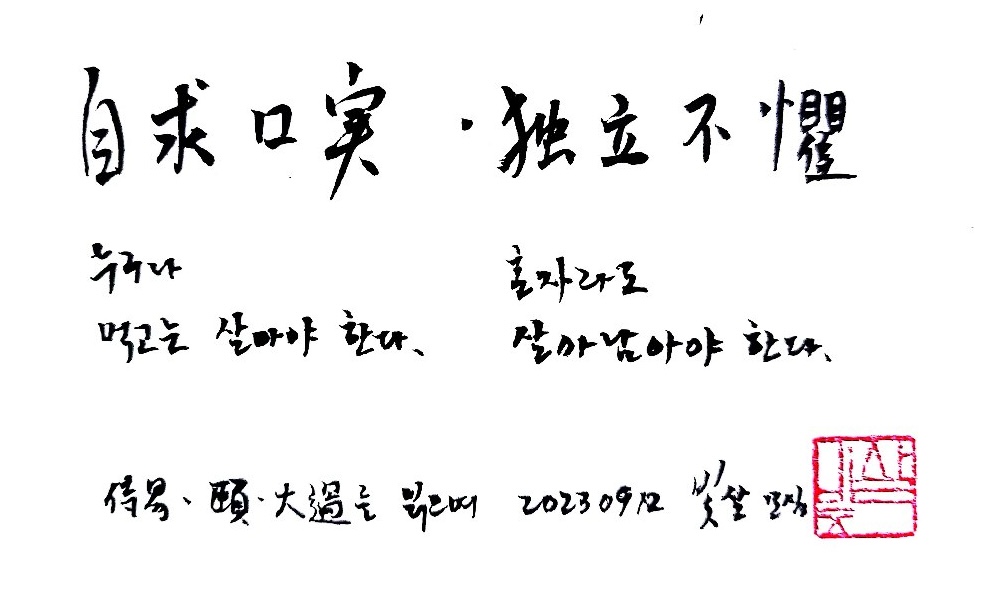 自求口実 · 独立不懼
누구나
먹고는 살아야 한다.
혼자라도
살아남아야 한다.
侍易·頤·大過를 읽으며 20230912 빛살 모심